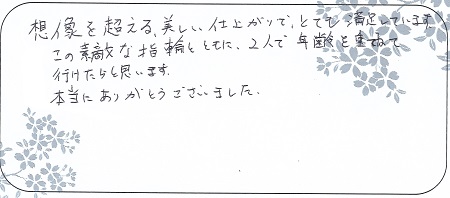 想像を超える、美しい仕上がりで、とても満足しています。
この素敵な指輪とともに、2人で年齢を重ねて
行けたらと思います。
本当にありがとうございました。